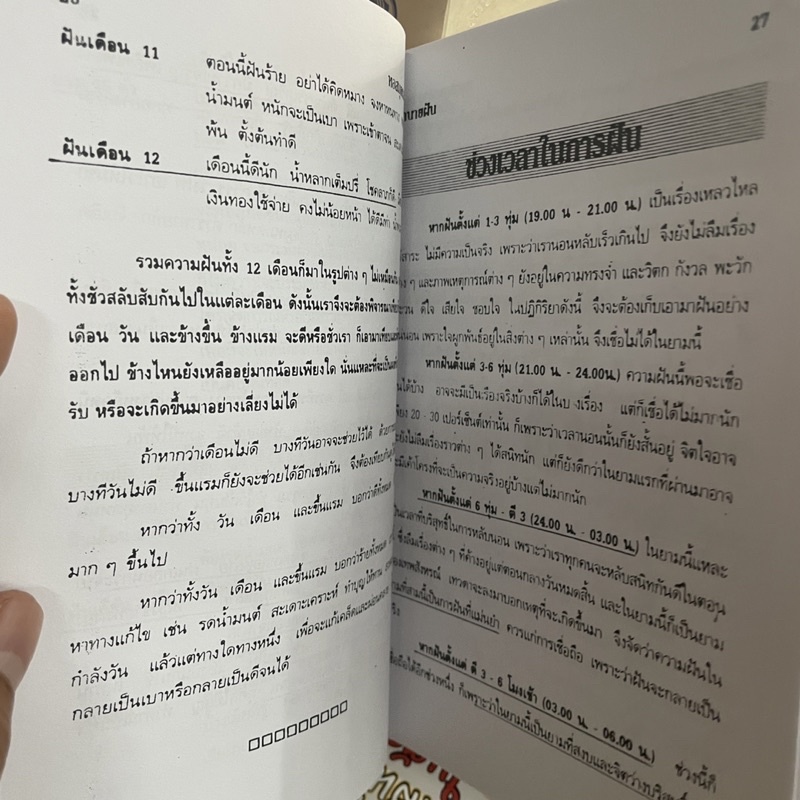 ฝันเดือน 11
ตอนนี้ฝันร้าย อย่าได้คิดหมาง จงหาหนทาง
น้ำมนต์ หนักจะเป็นเบา เพราะเข้าตาจน
พ้น ตั้งต้นทำดี
ฝันเดือน 12
เดือนนี้ดีนัก น้ำหลากเต็มปรี่ โชคลาภก็ดี
เงินทองใช้จ่าย คงไม่น้อยหน้า ได้ดีมีท่า
รวมความฝันทั้ง 12 เดือนก็มาในรูปต่าง ๆ ไม่เหมือนกัน
ทั้งชั่วสลับสับกันไปในแต่ละเดือน ดังนั้นเราจึงจะต้องพิจารณา
เดือน วัน และข้างขึ้น ข้างแรม จะดีหรือชั่วเรา ก็เอามาเทียบ
ออกไป ข้างไหนยังเหลืออยู่มากน้อยเพียงใด นั่นแหละที่จะเป็น
รับ หรือจะเกิดขึ้นมาอย่างเลี่ยงไม่ได้
ถ้าหากว่าเดือนไม่ดี บางทีวันอาจจะช่วยไว้ได้
บางทีวันไม่ดี ขึ้นแรมก็ยังจะช่วยได้อีกเช่นกัน จึงต้องเทียบ
หากว่าทั้ง วัน เดือน และขึ้นแรม บอกว่าดีทั้งหมด
มาก ๆ ขึ้นไป
หากว่าทั้งวัน เดือน และขึ้นแรม บอกว่าร้ายทั้งหมด
หาทางแก้ไข เช่น รดน้ำมนต์ สะเดาะเคราะห์ ทำบุญให้ทาน
กำลังวัน แล้วแต่ทางใดทางหนึ่ง เพื่อจะแก้เคล็ดและผ่อน
กลายเป็นเบาหรือกลายเป็นดีจนได้
27
ช่วงเวลาในการฝัน
หากฝันตั้งแต่ 1-3 ทุ่ม (19.00 น - 21.00 น.) เป็นเรื่องเหลวไหล
ไม่มีความเป็นจริง เพราะว่าเรานอนหลับเร็วเกินไป จึงยังไม่ลืมเรื่อง
ๆ และภาพเหตุการณ์ต่าง ๆ ยังอยู่ในความทรงจำ และวิตก กังวล พะวัก
ดีใจ เสียใจ ชอบใจ ในปฏิกิริยาดังนี้ จึงจะต้องเก็บเอามาฝันอย่าง
เพราะใจผูกพันธ์อยู่ในสิ่งต่าง ๆ เหล่านั้น จึงเชื่อไม่ได้ในยามนี้
หากฝันตั้งแต่ 3-6 ทุ่ม (21.00 น. - 24.00น.) ความฝันนี้พอจะเชื่อ
ได้บ้าง อาจจะมีเป็นเรื่องจริงบ้างก็ได้ในบางเรื่อง แต่ก็เชื่อได้ไม่มากนัก
20 - 30 เปอร์เซ็นต์เท่านั้น ก็เพราะว่าเวลานอนนั้นก็ยังสั้นอยู่ จิตใจอาจ
จะยังไม่ลืมเรื่องราวต่าง ๆ ได้สนิทนัก แต่ก็ยังดีกว่าในยามแรกที่ผ่านมาอาจ
จะมีเค้าโครงที่จะเป็นความจริงอยู่บ้างแต่ไม่มากนัก
หากฝันตั้งแต่ 6 ทุ่ม - ตี 3 (24.00 น. - 03.00 น.) ในยามนี้แหละ
เป็นเวลาที่บริสุทธิ์ในการหลับนอน เพราะว่าเราทุกคนจะหลับสนิทกันดีในตอน
ซึ่งลืมเรื่องต่าง ๆ ที่ค้างอยู่แต่ตอนกลางวันหมดสิ้น และในยามนี้ก็เป็นยาม
เทพสังหรณ์ เทวดาจะลงมาบอกเหตุที่จะเกิดขึ้นมา จึงจัดว่าความฝันใน
ยามที่สามนี้เป็นการฝันที่แม่นยำ ควรแก่การเชื่อถือ เพราะว่าฝันจะกลายเป็น
จริง
หากฝันตั้งแต่ ตี 3 - 6 โมงเช้า (03.00 น. - 06.00 น.) ช่วงนี้ก็
เชื่อถือได้อีกช่วงหนึ่ง ก็เพราะว่าในยามนี้เป็นยามที่สงบและจิตว่าง